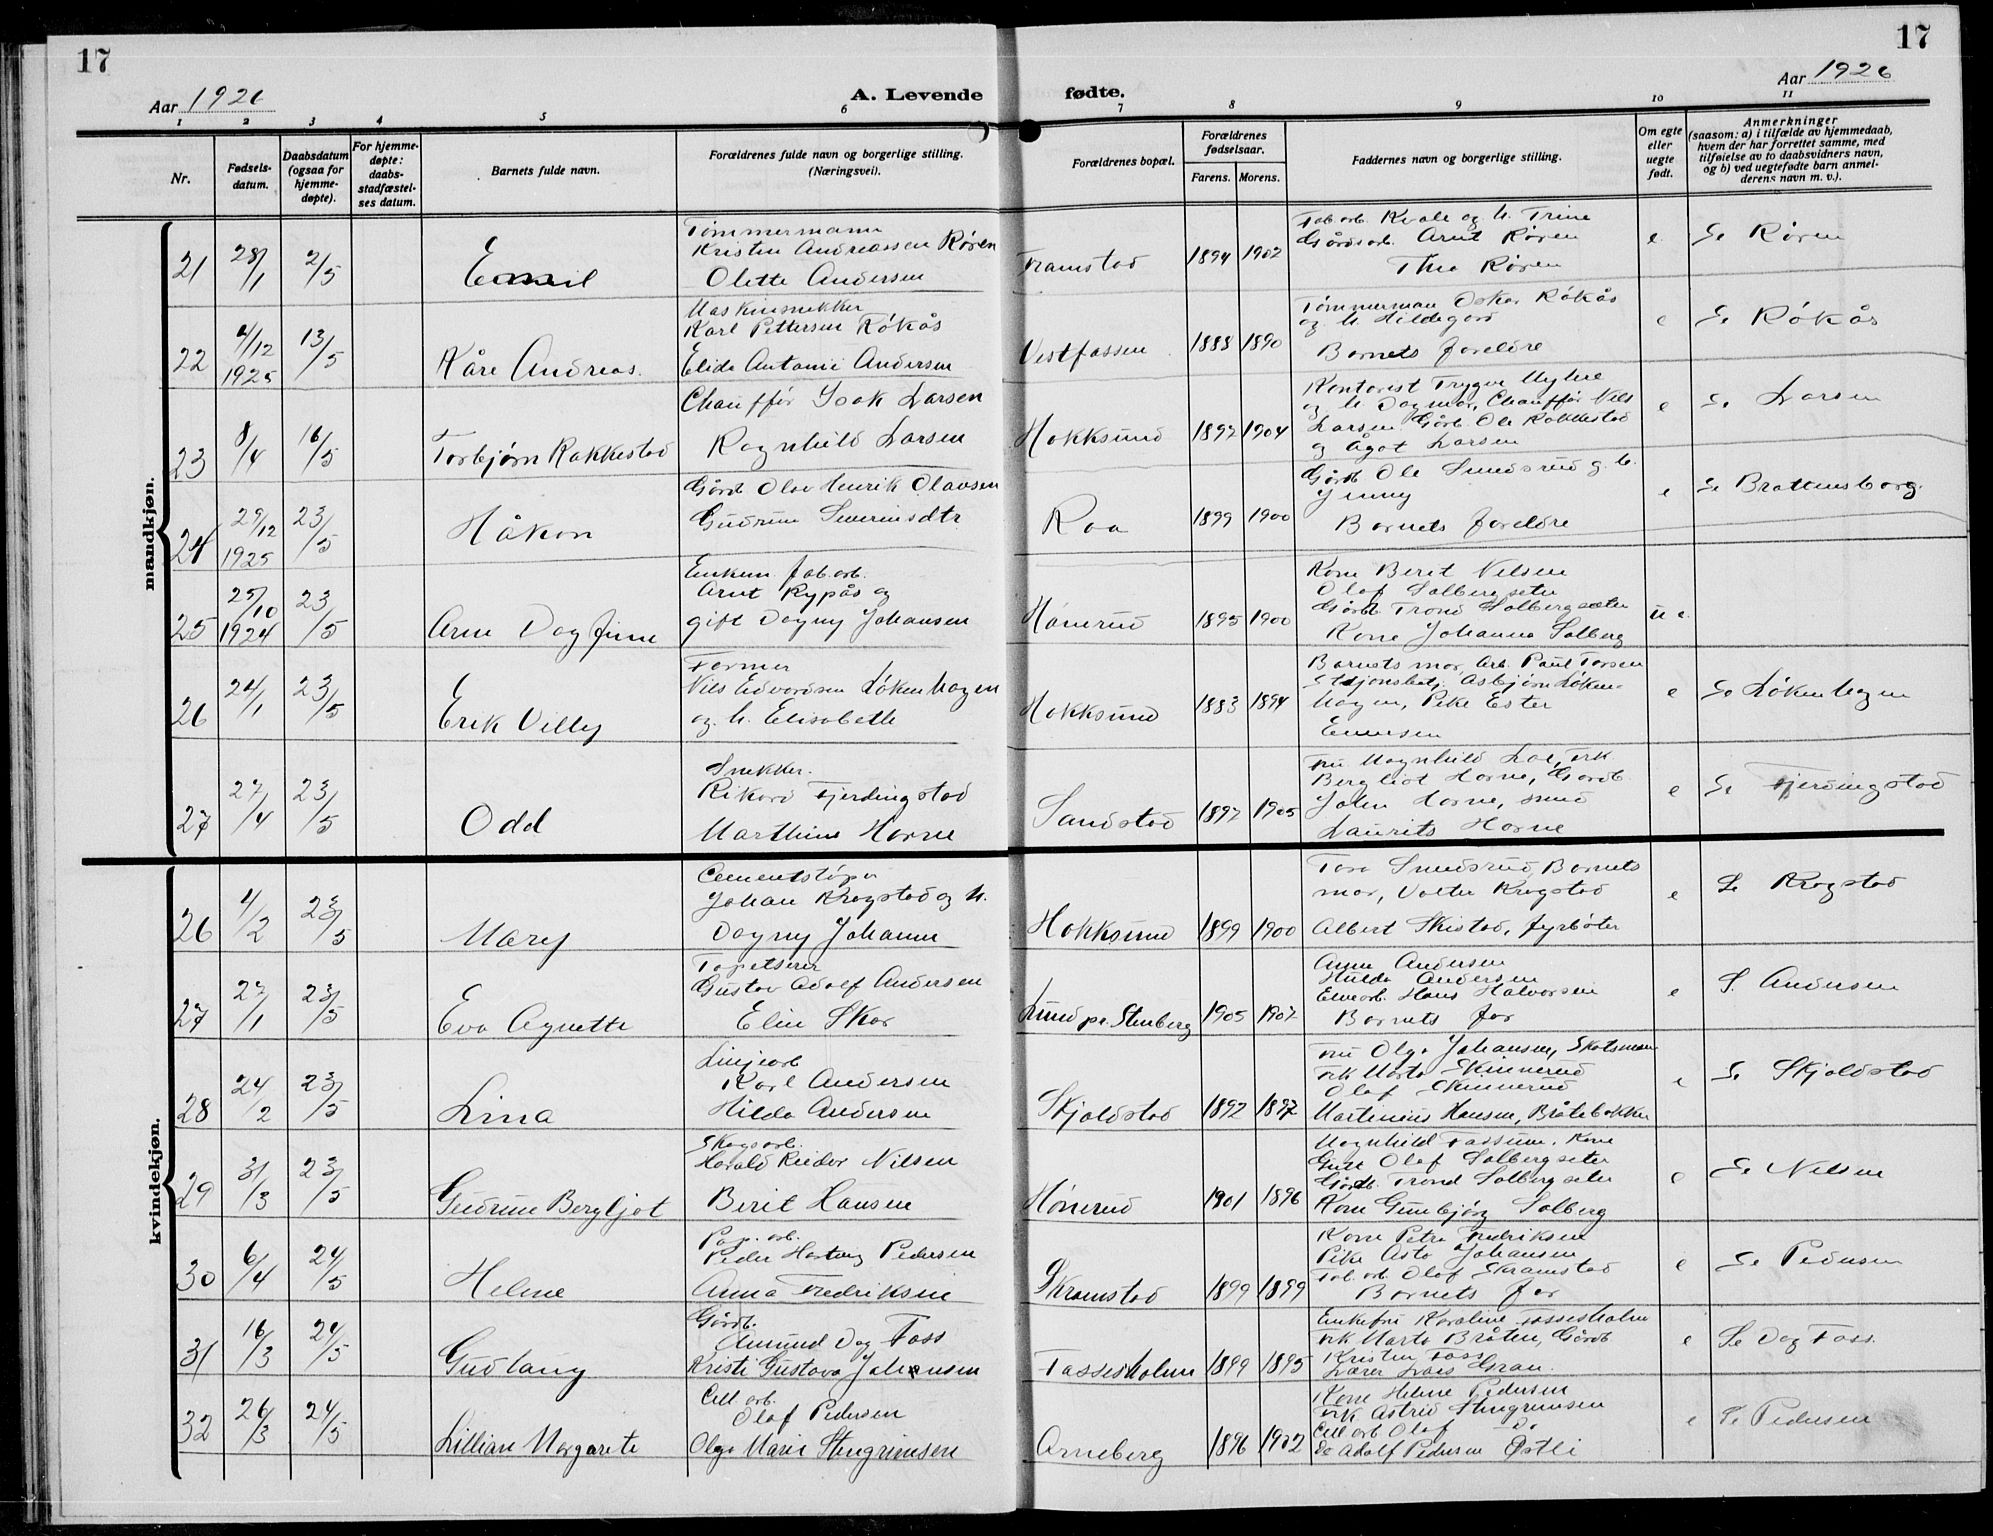 17
17
Aar 1926
A. Levende
fødte.
Aar 1926
1 2 3 4 5 6 7 8 9 10 11
Nr.
Fødsels-
datum.
Daabsdatum
(ogsaa for
hjemme-
døpte).
For hjemme-
døpte:
daabs-
stadfæstel-
ses datum.
Barnets fulde navn.
Forældrenes fulde navn og borgerlige stilling.
(Næringsvei).
Forældrenes bopæl.
Forældrenes
fødselsaar.
Farens. Morens.
Faddernes navn og borgerlige stilling.
Om egte
eller
uegte
født.
Anmerkninger
(saasom: a) i tilfælde av hjemmedaab,
hvem der har forrettet samme, med
tilføielse av to daabsvidners navn,
og b) ved uegtefødte barn anmel-
derens navn m. v.).
mandkjøn.
21 28/1 2/5 Emil
Tømmermann
Kristen Andreassen Røren
Olette Andersen
Framstad 1894 1902
Fab arb. Kvale og h. Trine
Gårdsarb. Arnt Røren
Thea Røren
e. Se Røren
22 4/12 1925 13/5 Kåre Andreas.
Maskinsnekker
Karl Pettersen Røkås
Elida Antonie Andersen
Vestfossen 1888 1890
Tømmerman Oskar Røkås
og h. Hildegard
Barnets foreldre
e Se Røkås
23 8/4 16/5 Torbjørn Rakkestad
Chauffør Isak Larsen
Ragnhild Larsen
Hokksund 1897 1904
Kontorist Trygve Myhre
og h. Dagmar, Chauffør Nils
Larsen Gårb. Ole Rakkestad
og Ågot Larsen
e Se Larsen
24 29/12 1925 23/5 Håkon
Gårdb Olav Henrik Olausen
Gudrun Severinsdtr
Roa 1899 1900
Gårdb Ole Smedsrud g. h.
Jenny
Barnets foreldre
e Se Brattensborg.
25 25/10 1924 23/5 Arne Dag Finn
Enkem. fab. arb.
Arnt Rypås og
gift Dagny Johansen
Hønerud 1895 1900
Kone Berit Nilsen
Olaf Solbergseter
Gårdb Trond Solbergsæter
Kone Johanna Solberg
u e.
26 24/1 23/5 Erik Villy
Former
Nils Edvardsen Løkenhagen
og h. Elisabeth
Hokksund 1883 1894
Barnets mor, Arb. Paul Torsen
Stasjonsbetj. Asbjørn Løken-
hagen, Pike Ester
Evensen
e Se Løkenhagen
27 27/4 23/5 Odd
Snekker.
Rikard Fjerdingstad
Marthine Horne
Sandstad 1897 1905
Fru Magnhild Loe, Frk
Bergliot Horne, Gårdb
John Horne, smed
Laurits Horne
e Se Fjerdingstad
kvindekjøn.
26 4/2 23/5 Mary
Cementstøper
Johan Kragstad og h.
Dagny Johanne
Hokksund 1899 1900
Tora Smedsrud, Barnets
mor, Valter Kragstad
Albert Skistad, fyrbøter
e Se Kragstad
27 27/1 23/5 Eva Agnette
Tapetserer
Gustav Adolf Andersen
Elin Skar
Lund pr. Stenberg 1905 1907
Anna Andersen
Hulda Andersen
Elvearb. Hans Halvorsen
Barnets far
e S. Andersen
28 24/2 23/5 Lina
Linjearb
Karl Andersen
Hilda Andersen
Skjoldstad 1892 1897
Fru Olga Johansen, Skotsmoen
Frk Marta Skinnerud
Olaf Skinnerud
Martinius Hansen, Bråtebakken
e Se Skjoldstad
29 31/3 23/5 Gudrun Bergljot
Skogsarb.
Harald Reidar Nilsen
Berit Hansen
Hønerud 1901 1896
Magnhild Fossum. Kone
Olaf Solbergseter
Gårdb. Trond Solbergseter
Kone Gunbjørg Solberg
e Se Nilsen
30 6/4 24/5 Helene
Pap. arb.
Peder Hartvig Pedersen
Anna Fredriksen
Skramstad 1899 1899
Kone Petra Fredriksen
Pike Asta Johansen
Fab. arb. Olaf Skramstad
Barnets far
e Se Pedersen
31 16/3 24/5 Gudlaug
Gårdb.
Amund Dag Foss
Kristi Gustava Johansen
Fossesholm 1899 1895
Enkefru Karoline Fossesholm
Frk Marta Bråten, Gårdb
Kristen Foss
Lærer Lars Gran.
e Se Dag Foss.
32 26/3 24/5 Lillian Margarete
Cell arb.
Olaf Pedersen
Olga Marie Stengrimsen
Arneberg 1896 1902
Kone Helene Pedersen
Frk Astrid Stengrimsen
Cell arb Olaf do
do Adolf Pedersen Østli
e Se Pedersen